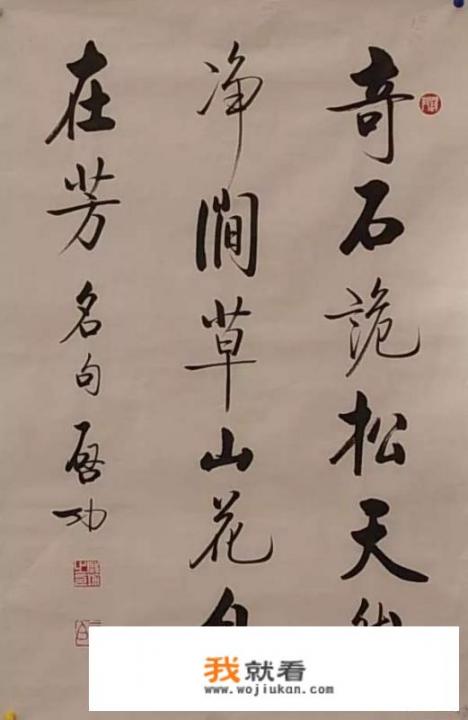 奇石詭松天
净澗草山花
在芳名句启功
我就看
www.wojiukan.com